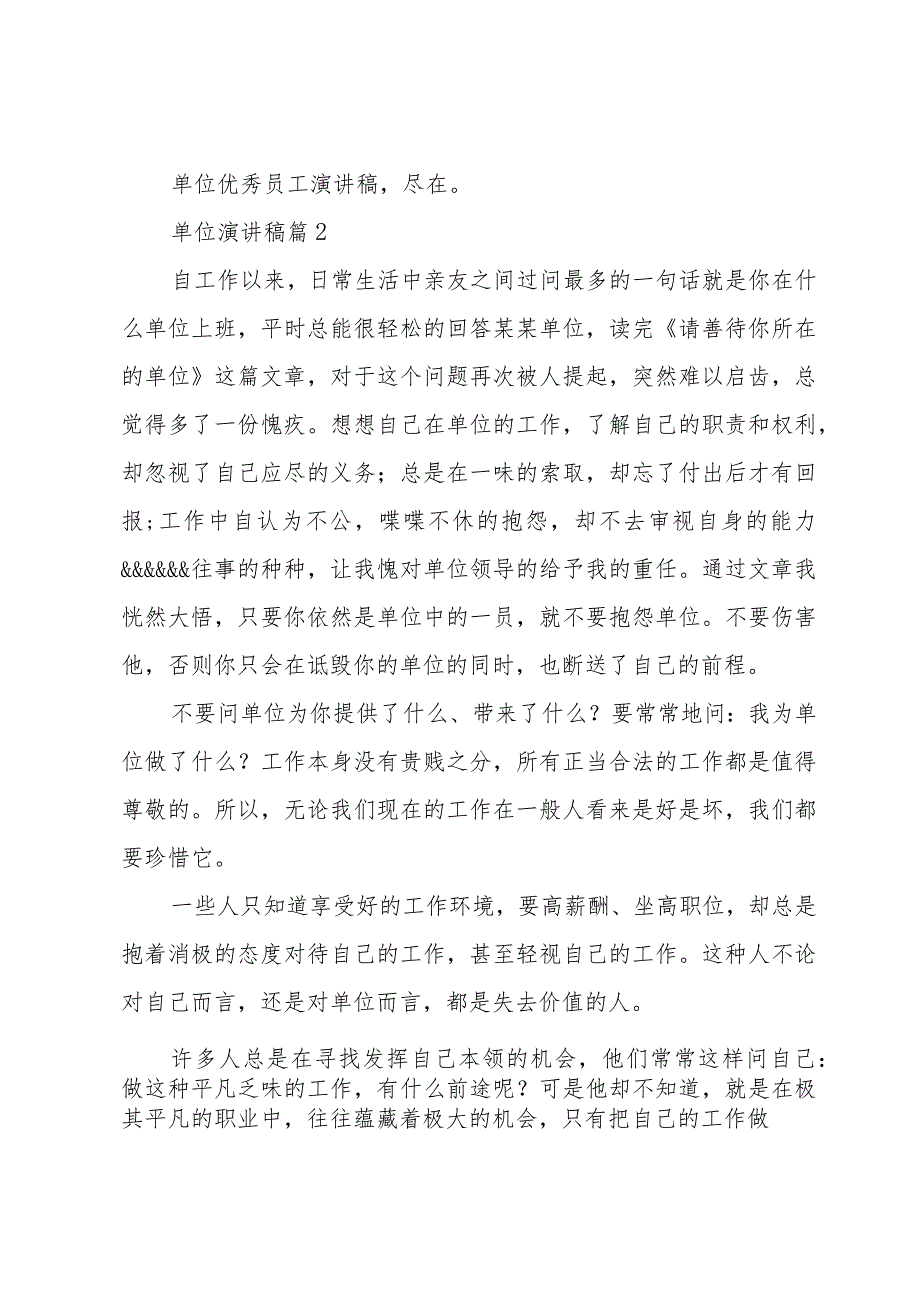 单位优秀员工演讲稿，尽在。
单位演讲稿篇2
自工作以来，日常生活中亲友之间过问最多的一句话就是你在什
么单位上班，平时总能很轻松的回答某某单位，读完《请善待你所在
的单位》这篇文章，对于这个问题再次被人提起，突然难以启齿，总
觉得多了一份愧疚。想想自己在单位的工作，了解自己的职责和权利，
却忽视了自己应尽的义务；总是在一味的索取，却忘了付出后才有回
报;工作中自认为不公，喋喋不休的抱怨，却不去审视自身的能力
&&&&&&往事的种种，让我愧对单位领导的给予我的重任。通过文章我
恍然大悟，只要你依然是单位中的一员，就不要抱怨单位。不要伤害
他，否则你只会在诋毁你的单位的同时，也断送了自己的前程。
不要问单位为你提供了什么、带来了什么？要常常地问：我为单
位做了什么？工作本身没有贵贱之分，所有正当合法的工作都是值得
尊敬的。所以，无论我们现在的工作在一般人看来是好是坏，我们都
要珍惜它。
一些人只知道享受好的工作环境，要高薪酬、坐高职位，却总是
抱着消极的态度对待自己的工作，甚至轻视自己的工作。这种人不论
对自己而言，还是对单位而言，都是失去价值的人。
许多人总是在寻找发挥自己本领的机会，他们常常这样问自己：
做这种平凡乏味的工作，有什么前途呢？可是他却不知道，就是在极
其平凡的职业中，往往蕴藏着极大的机会，只有把自己的工作做